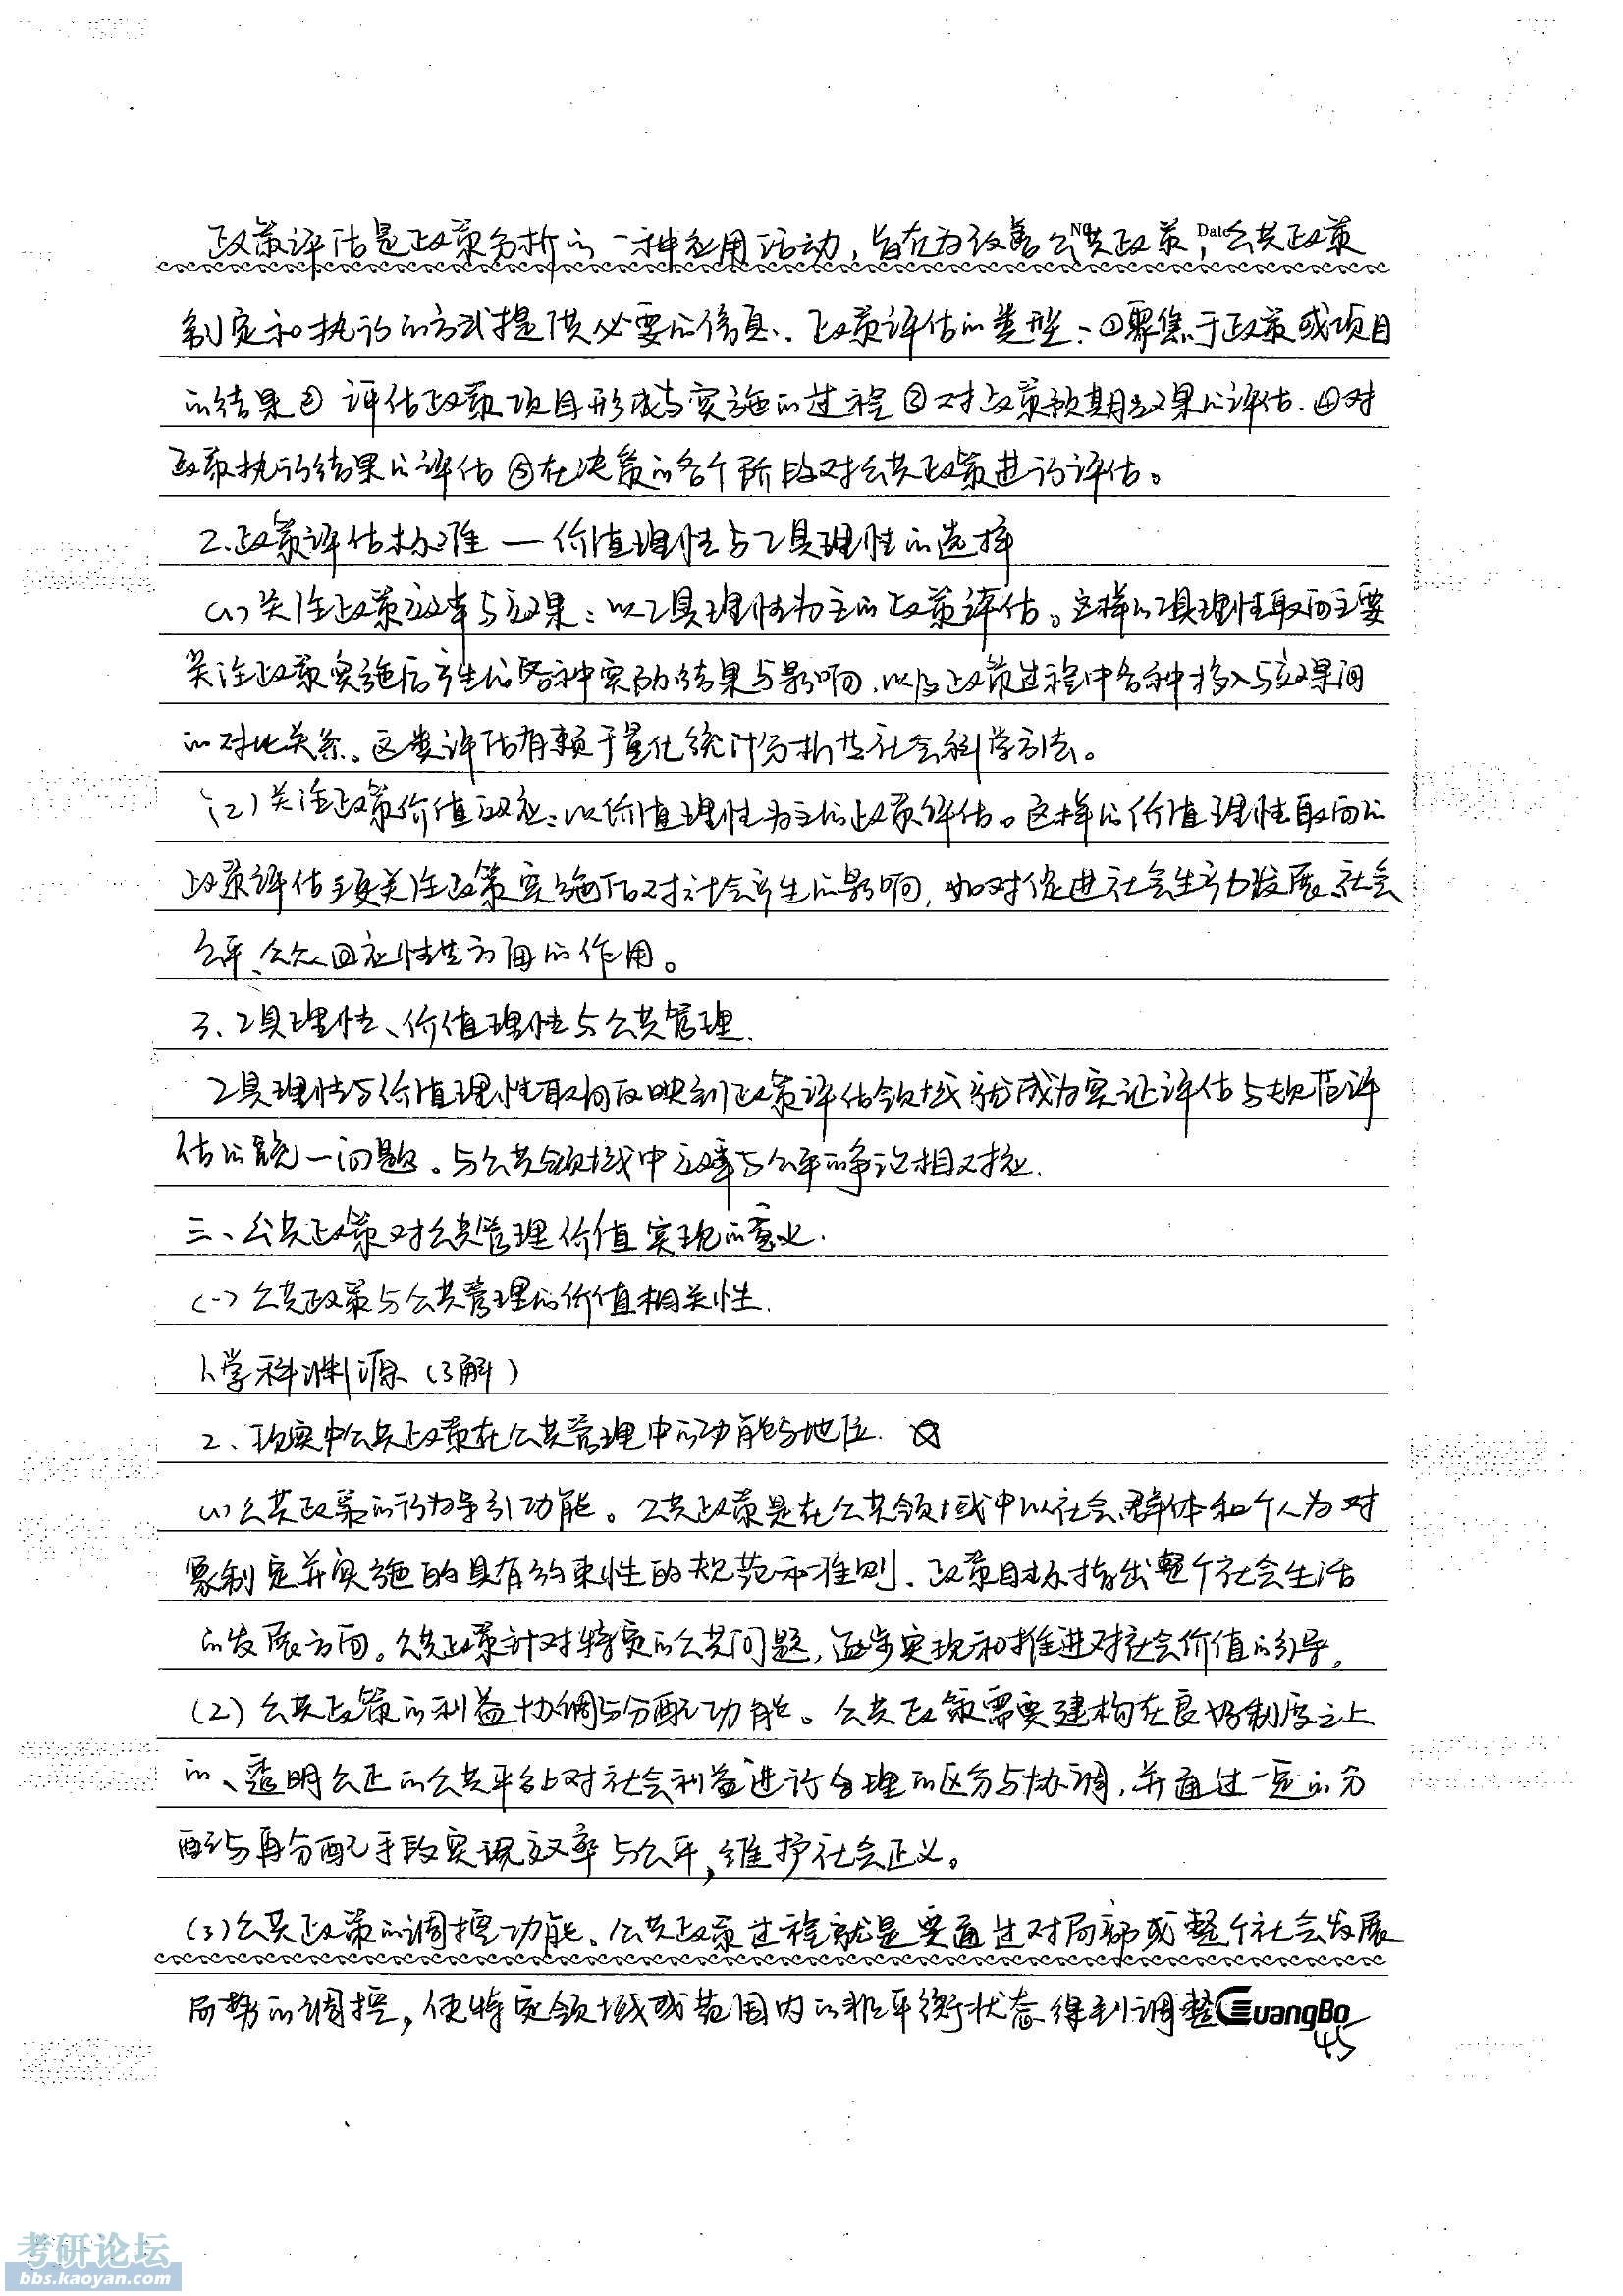 No. Date
政策评估是政策分析的一种应用活动，旨在为改善公共政策，公共政策
制定和执行的方式提供必要的信息、政策评估的类型、①聚焦于政策或项目
的结果② 评估政策项目形成与实施的过程③对政策预期效果的评估.④对
政策执行结果的评估⑤在决策的各个阶段对公共政策进行评估。
2.政策评估标准—价值理性与工具理性的选择
(1)关注政策效率与效果：以工具理性为主的政策评估。这样的工具理性取向主要
关注政策实施后产生的各种实际结果与影响.以及政策过程中各种投入与效果间
的对比关系。这类评估有赖于量化统计分析等社会科学方法。
(2)关注政策价值效应:以价值理性为主的政策评估。这样的价值理性取向的
政策评估主要关注政策实施后对社会产生的影响,如对促进社会生产力发展、社会
公平、公众回应性等方面的作用。
3、工具理性、价值理性与公共管理.
工具理性与价值理性取向反映到政策评估领域就成为实证评估与规范评
估的统一问题。与公共领域中效率与公平的争论相对应.
三、公共政策对公共管理价值实现的意义.
(一)公共政策与公共管理的价值相关性.
1、学科渊源(了解)
2、现实中公共政策在公共管理中的功能与地位. ☆
(1)公共政策的行为导引功能。公共政策是在公共领域中以社会、群体和个人为对
象制定并实施的具有约束性的规范和准则、政策目标指出整个社会生活
的发展方向。公共政策针对特定的公共问题,逐步实现和推进对社会价值的引导。
(2)公共政策的利益协调与分配功能。公共政策需要建构在良好制度之上
的、透明公正的公共平台上对社会利益进行合理的区分与协调,并通过一定的分
配与再分配手段实现效率与公平,维护社会正义。
(3)公共政策的调控功能、公共政策过程就是要通过对局部或整个社会发展
局势的调控,使特定领域或范围内的非平衡状态得到调整
GuangBo
45
考研论坛
bbs.kaoyan.com